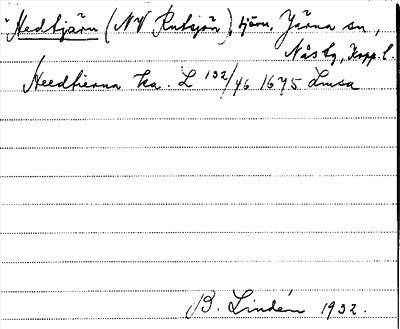 "Hedtjärn (NV Rutsjön), tjärn, Järna sn,
Nås tg, Kopp. l.
Heedtierna ka. L 132/46 1675 Lmsa
B. Lindén 1932.